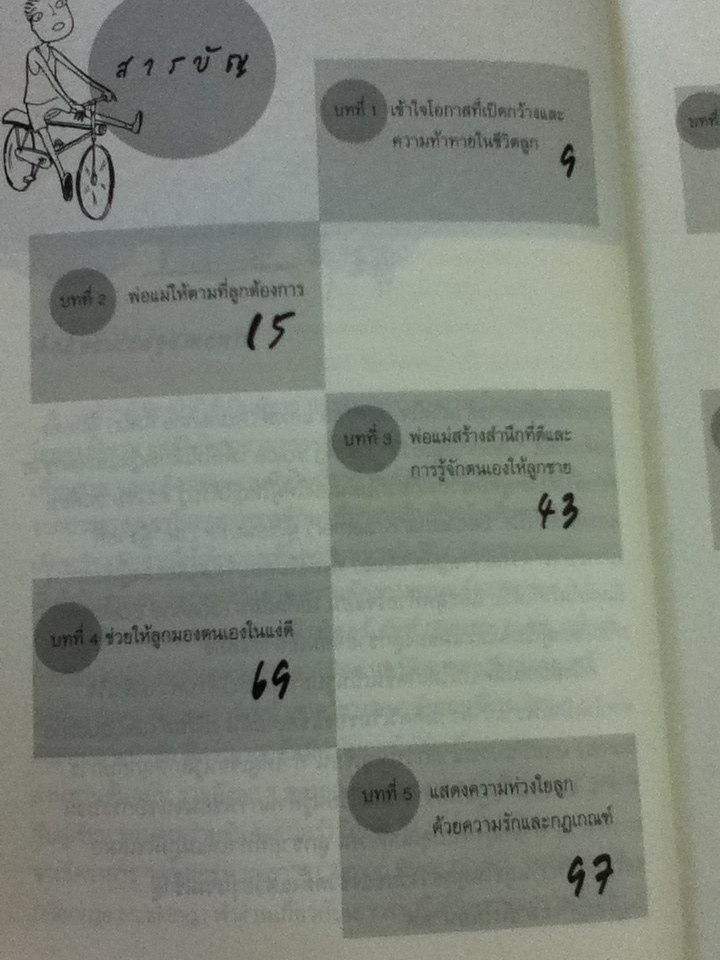 สารบัญ
บทที่ 1 เข้าใจโอกาสที่เปิดกว้างและ
ความท้าทายในชีวิตลูก
9
บทที่ 2 พ่อแม่ให้ตามที่ลูกต้องการ
15
บทที่ 3 พ่อแม่สร้างสำนึกที่ดีและ
การรู้จักตนเองให้ลูกชาย
43
บทที่ 4 ช่วยให้ลูกมองตนเองในแง่ดี
69
บทที่ 5 แสดงความห่วงใยลูก
ด้วยความรักและกฎเกณฑ์
97
บทที่